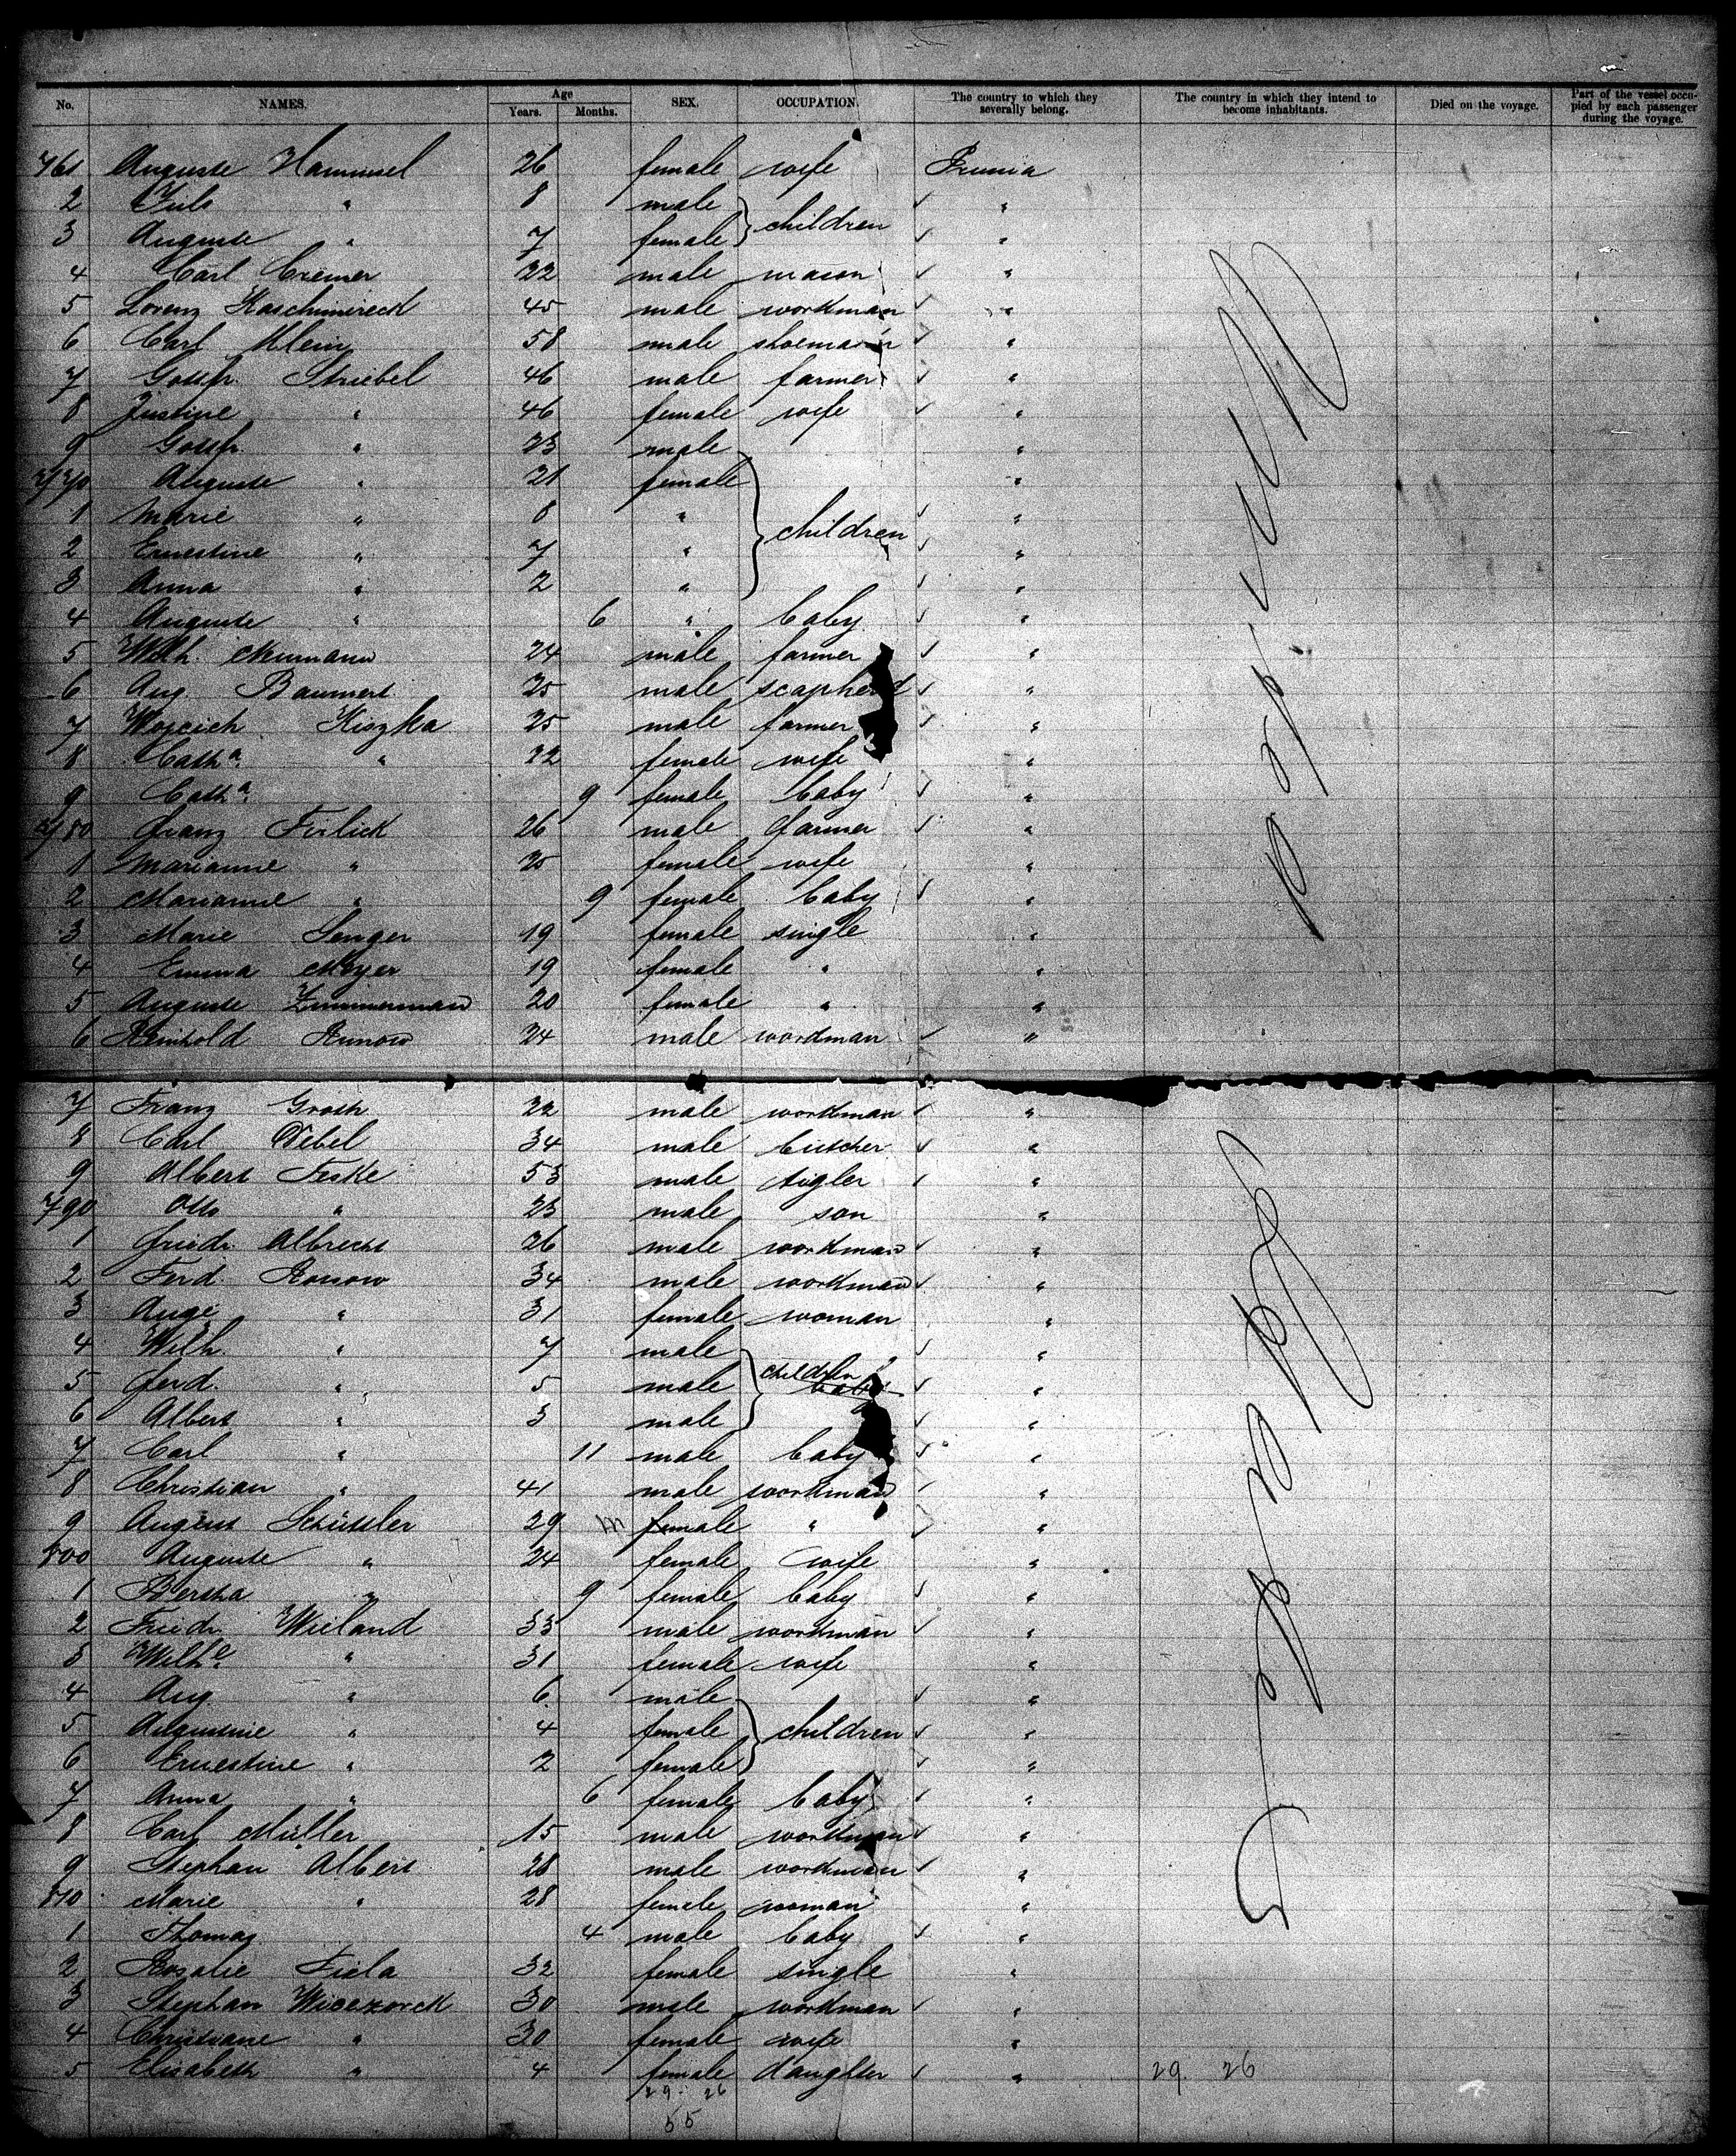 No. NAMES. Age Years. Months. SEX. OCCUPATION. The country to which they severally belong. The country in which they intend to become inhabitants. Died on the voyage. Part of the vessel occupied by each passenger during the voyage.
761 Auguste 26 female wife Prussia
2 Juls " 8 male children "
3 Auguste " 7 female "
4 Carl Cremer 22 male mason "
5 Lorenz 45 male workman "
6 Carl Klein 58 male "
7 Gottfr. Striebel 46 male farmer "
8 Justine " 46 female wife "
9 Gottfr. " 23 male "
770 Auguste " 21 female "
1 Marie " 8 " children "
2 Ernestine " 7 " "
3 Anna " 2 " "
4 Auguste " 6 " baby "
5 Wilh. Neumann 24 male farmer "
6 Aug. Baumert 25 male scapherd "
7 Wojcich Kiszka 25 male farmer "
8 Catha. " 22 female wife "
9 Catha. 9 female baby "
780 Franz Firlick 26 male farmer "
1 Marianne " 25 female wife "
2 Marianne " 9 female baby "
3 Marie Senger 19 female single "
4 Emma Meyer 19 female " "
5 Auguste Zimmermann 20 female " "
6 Reinhold 24 male workman "
7 Franz Groth 22 male workman "
8 Carl Debel 34 male butcher "
9 Albert Feske 53 male tigler "
790 Otto " 23 male son "
1 Friedr. Albrecht 26 male workman "
2 Ferd. Rossow 34 male workman "
3 Auge. " 31 female woman "
4 Wilh. " 7 male "
5 Ferd. " 5 male children baby "
6 Albert " 3 male "
7 Carl " 11 male baby "
8 Christian " 41 male workman "
9 August Schüssler 29 m female " "
800 Auguste " 24 female wife "
1 Bertha " 9 female baby "
2 Friedr. Wieland 33 male workman "
3 Wilhe. " 31 female wife "
4 Aug. " 6 male "
5 Augustine " 4 female children "
6 Ernestine " 2 female "
7 Anna " 6 female baby "
8 Carl Müller 15 male workman "
9 Stephan Albert 28 male workman "
810 Marie " 28 female woman "
1 Thomas 4 male baby "
2 Rosalie Fiela 32 female single "
3 Stephan Wieczorek 30 male workman "
4 Christiane " 30 female wife "
5 Elisabeth " 4 female daughter " 29. 26
29. 26
55